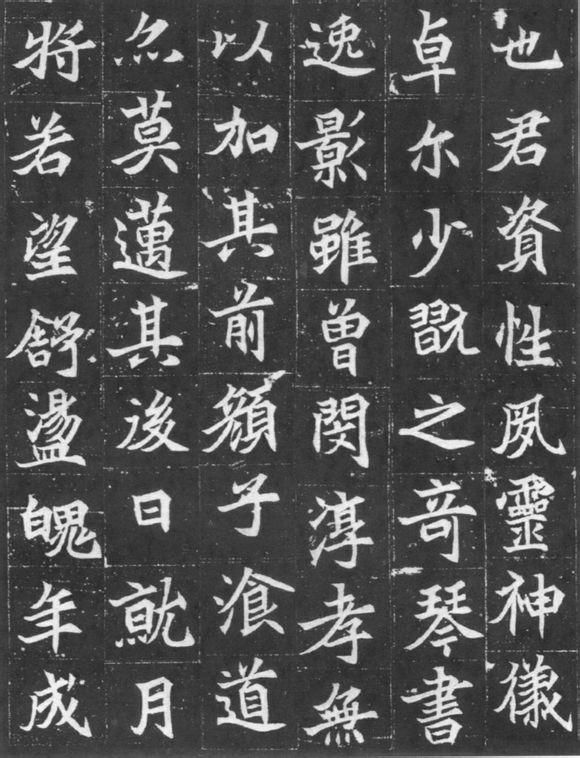 也君資性夙靈神儀
卓尒少之奇琴書
速影雖曾閔淳孝無
以加其前顏子湌道
亦莫邁其後日就月
將若望舒盪魄年成